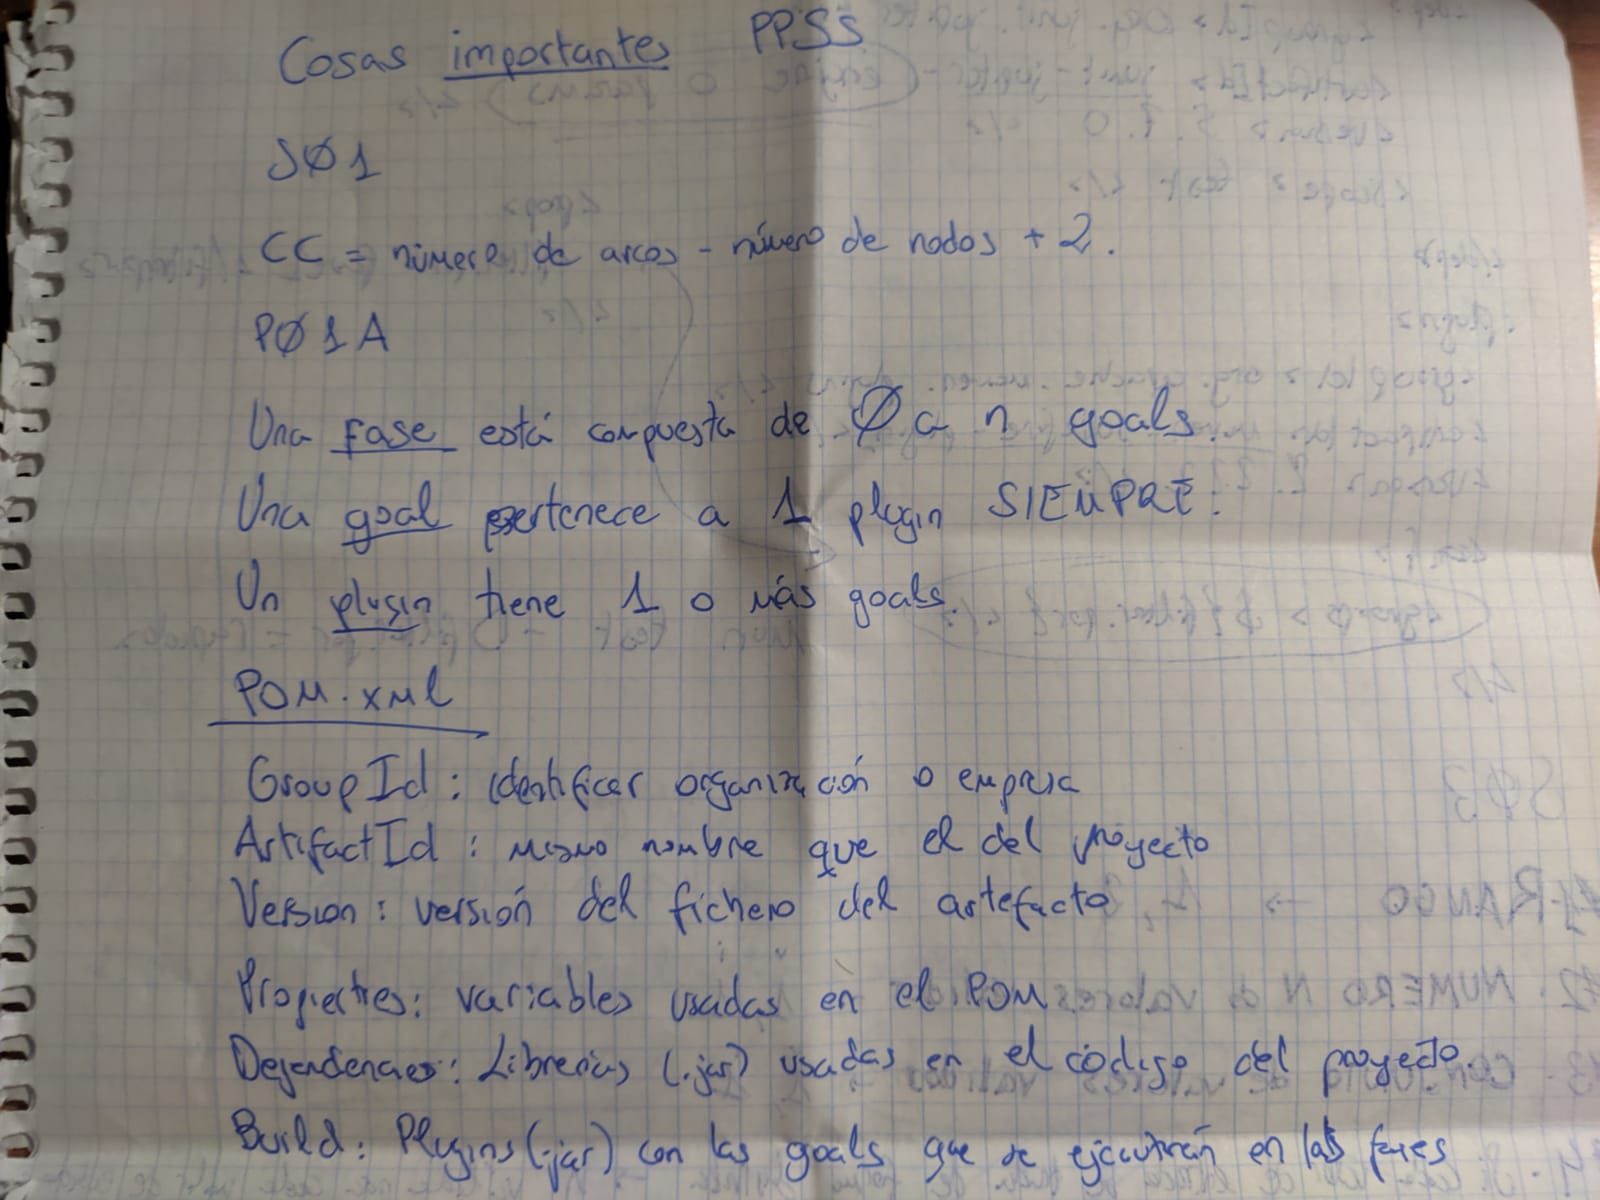 Cosas importantes PPSS
SØ1
CC = número de arcos - número de nodos + 2.
PØ1A
Una fase está compuesta de Ø a n goals.
Una goal pertenece a 1 plugin SIEMPRE.
Un plugin tiene 1 o más goals.
POM.xml
GroupId: identificar organización o empresa
ArtifactId: mismo nombre que el del proyecto
Version: versión del fichero del artefacto
Properties: variables usadas en el POM
Dependencies: Librerias (.jar) usadas en el código del proyecto.
Build: Plugins (.jar) con las goals que se ejecutarán en las fases